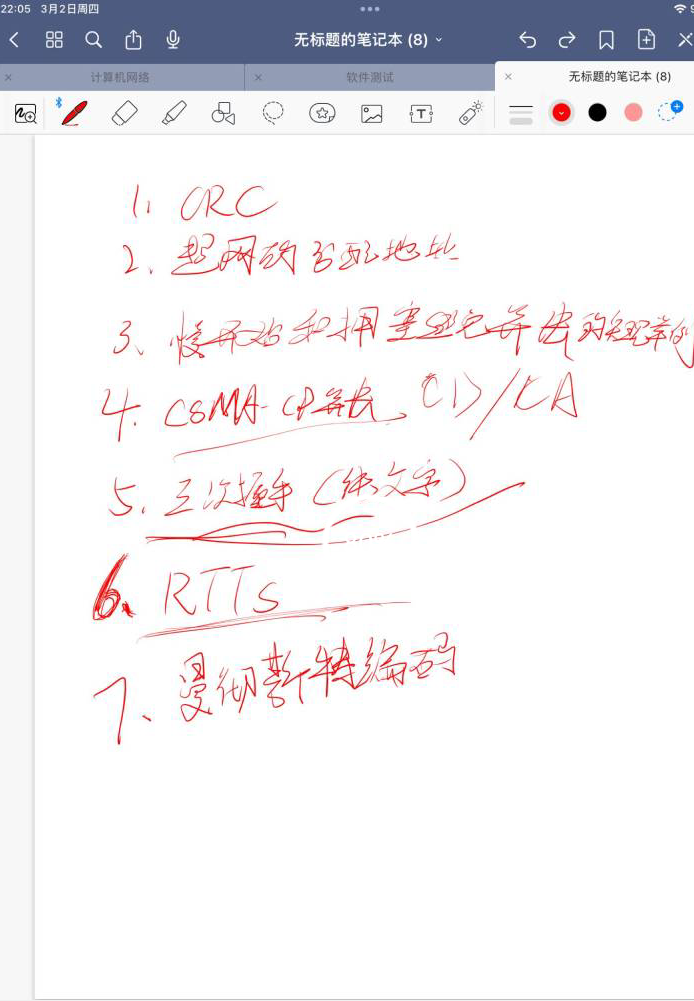 22:05 3月2日周四
无标题的笔记本 (8)
计算机网络
软件测试
无标题的笔记本 (8)
T
1. CRC
2. 超网的分配地址
3、慢开始和拥塞避免算法的
4. CSMA-CD算法、CD/CA
5. 三次握手（纯文字）
6、RTTs
7、曼彻斯特编码